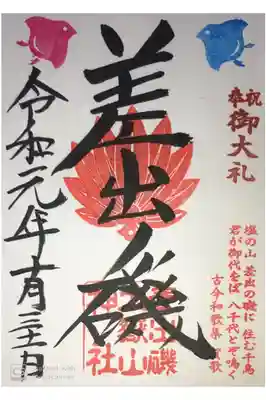 奉祝
御大礼
塩の山 差出の磯に 住む千鳥
君が御代をば 八千代とぞ鳴く
古今和歌集 賀歌
差出ノ磯
出磯
嶽山
神社
令和元年十月三十日